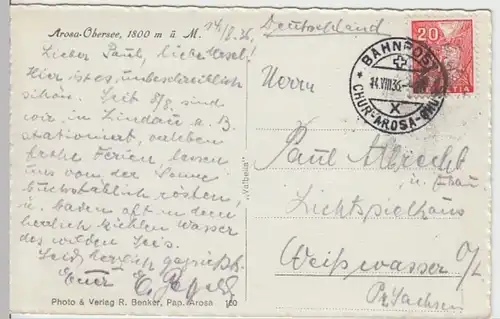 Arosa-Obersee, 1800 m ü. M.
14/8.36.
Deutschland
Lieber Paul, liebe
Hier ist es unbeschreiblich
schön. Seit 8/8. sind
wir, in Lindau a. B.
stationiert, verleben
frohe Ferien, lassen
uns von der Sonne
buchstäblich rösten,
u. baden oft in dem
herrlich kühlen Wasser
des wilden Sees.
Seid herzlich gegrüßt.
Euer
Photo & Verlag R. Benker, Pap. Arosa 160
"Valbella"
20
HELVETIA
BAHNPOST
14.VIII.36
CHUR-AROSA-CHUR
X
Herrn
Paul Albrecht
u. Frau
Lichtspielhaus
Weißwasser O/L
Pr. Sachsen